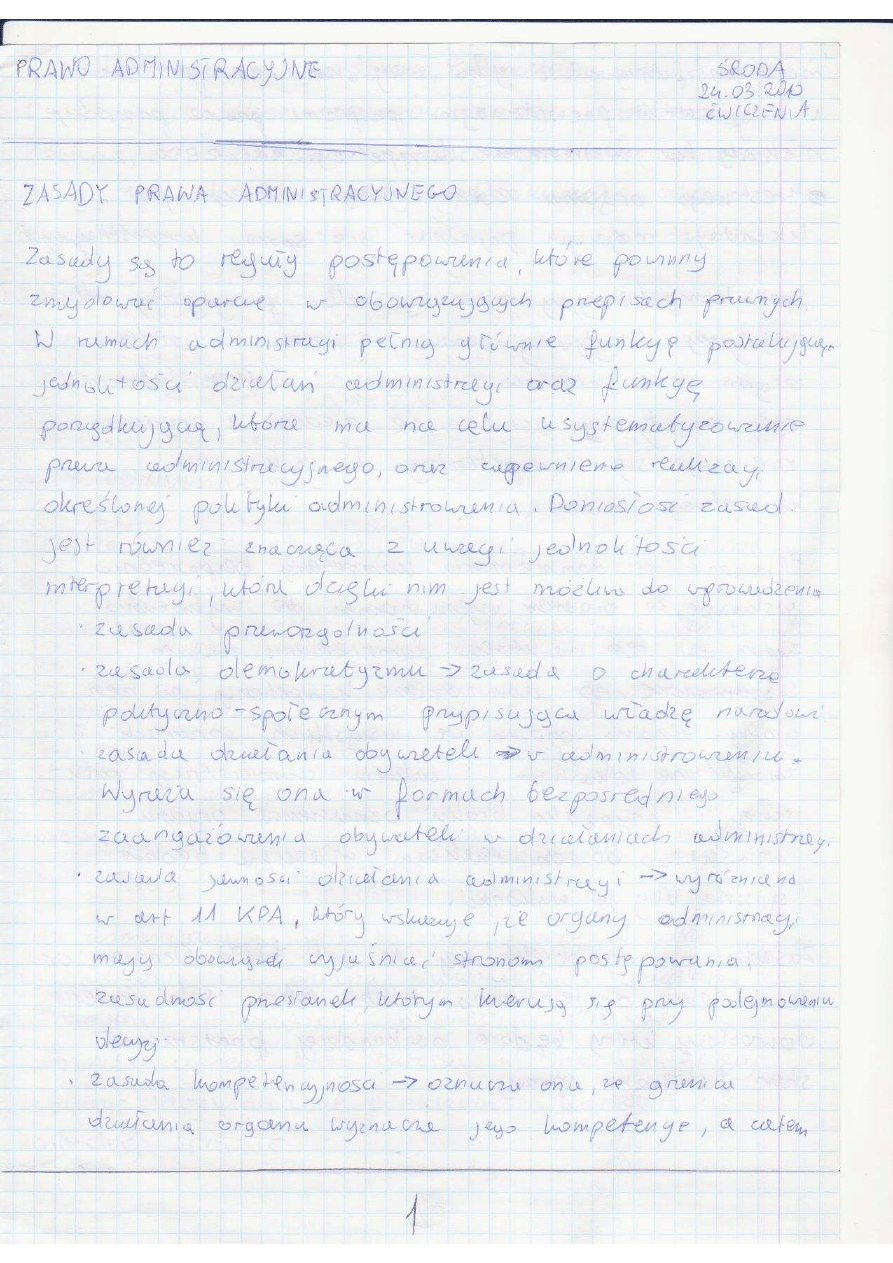 PRAWO ADMINISTRACYJNE
ŚRODA
24.03.2010
ĆWICZENIA
ZASADY PRAWA ADMINISTRACYJNEGO
Zasady są to reguły postępowania, które powinny
znajdować oparcie w obowiązujących przepisach prawnych.
W ramach administracji pełnią głównie funkcję postulującą
jednolitości działań administracji oraz funkcję
porządkującą, która ma na celu usystematyzowanie
prawa administracyjnego, oraz zapewnienie realizacji
określonej polityki administrowania. Doniosłość zasad
jest również znacząca z uwagi jednolitości
interpretacji, która dzięki nim jest możliwa do wprowadzenia
· zasada praworządności
· zasada demokratyzmu → zasada o charakterze
polityczno-społecznym przypisująca władzę narodowi
· zasada działania obywateli → w administrowaniu.
Wyraża się ona w formach bezpośredniego
zaangażowania obywateli w działaniach administracji
· zasada jawności działania administracji → wyróżniana
w art 11 KPA, który wskazuje, że organy administracji
mają obowiązek wyjaśniać stronom postępowania
zasadność przesłanek, którym kierują się przy podejmowaniu
decyzji
· zasada kompetencyjności → oznacza ona, że granica
działania organu wyznacza jego kompetencje, a zatem
1